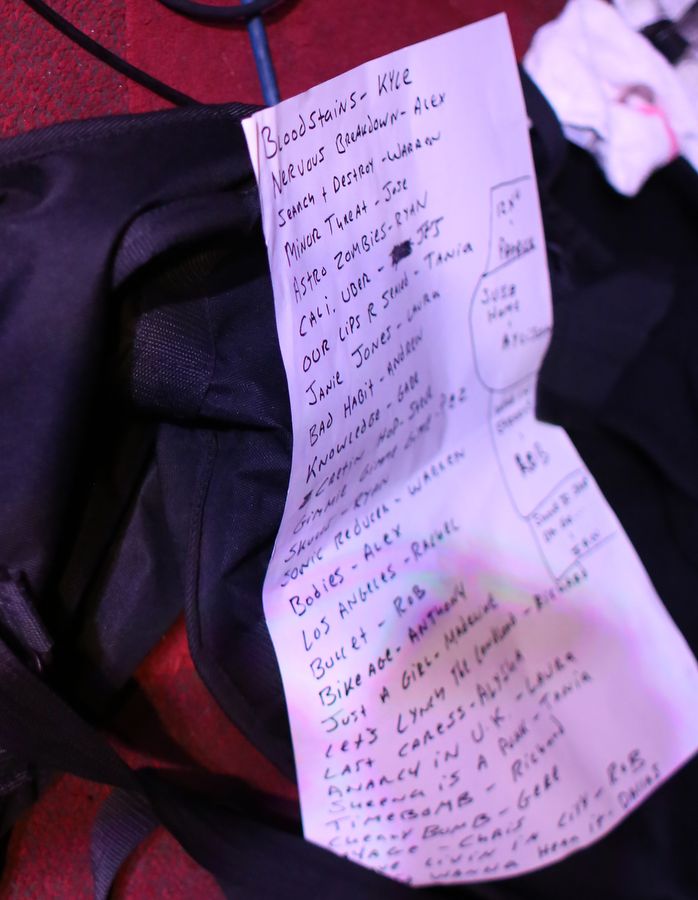 BloodStains - Kyle
Nervous Breakdown - Alex
Search + Destroy - Warren
Minor Threat - Jose
Astro Zombies - Ryan
Cali. Uber - Jeff
Our Lips R Sealed - Tania
Janie Jones - Laura
Bad Habit - Andrew
Knowledge - Gabe
Cretin Hop - Steve
Gimmie Gimmie Gimmie - Pez
Skulls - Ryan
Sonic Reducer - Warren
Bodies - Alex
Los Angeles - Rachel
Bullet - Rob
Bikeage - Anthony
Just A Girl - Madeline
Let's Lynch The Landlord - Richard
Last Caress - Alysha
Anarchy in U.K. - Laura
Sheena is A Punk - Tania
Timebomb - Richard
Cherry Bomb - Gere
Chris
Livin in City - Rob
Wanna Hear it - Dallas
Rob